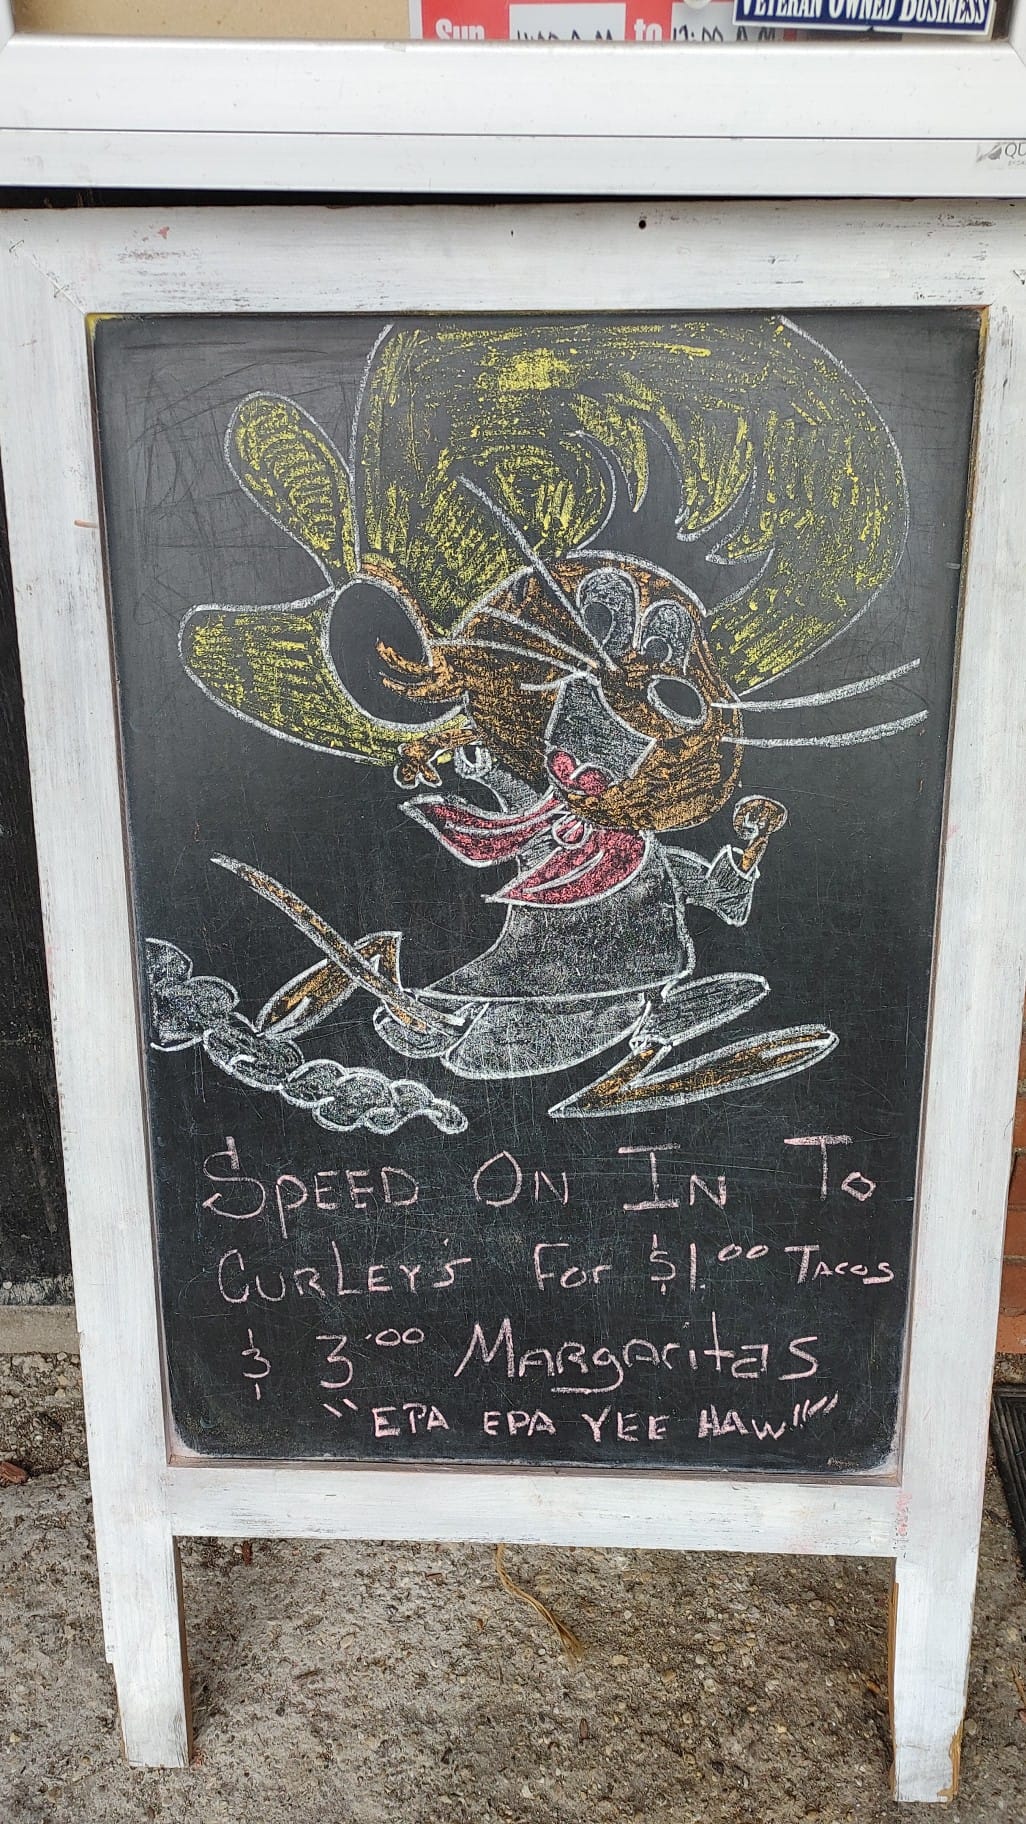 VETERAN OWNED BUSINESS
Sun
to
SPEED ON IN TO
CURLEY'S For $1.00 TACOS
& 3.00 MARGaritaS
"EPA EPA YEE HAW!!"